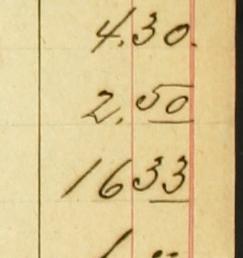 4.30.
2.50
1633